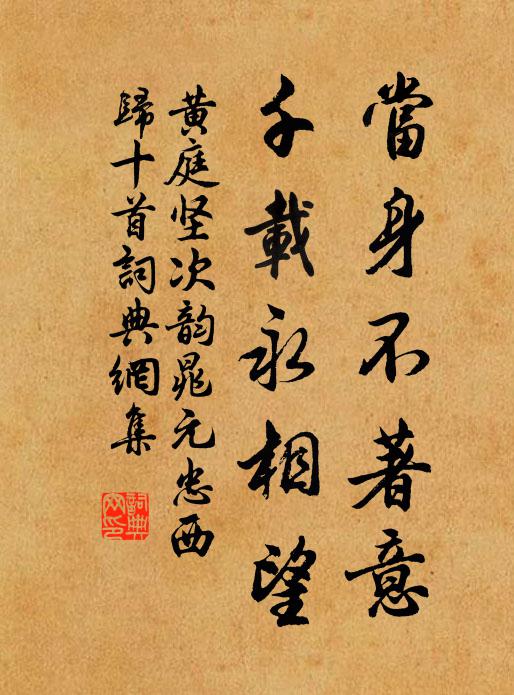 當身不著意
千載永相望
黄庭坚次韵晁元忠西
歸十首詞典網集
詞典网印